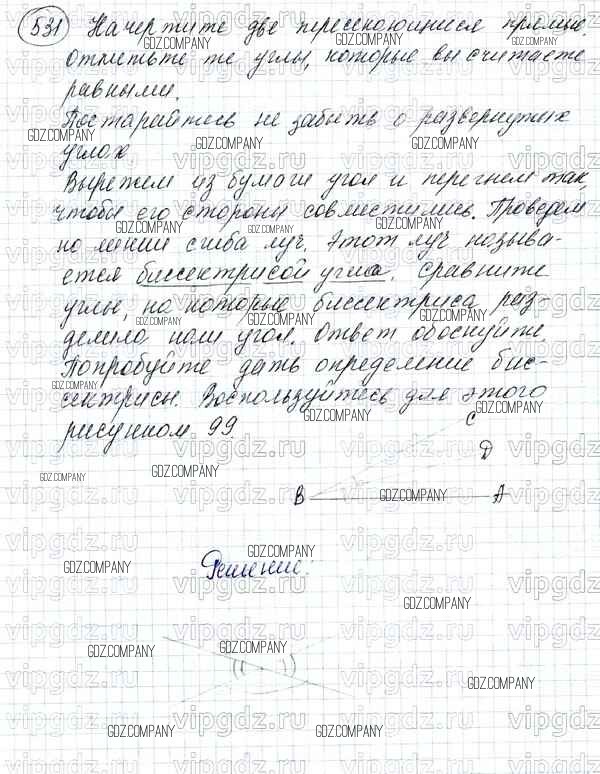 531 Начертите две пересекающиеся прямые.
Отметьте те углы, которые вы считаете
равными.
Постарайтесь не забыть о развернутых
углах
Вырежем из бумаги угол и перегнем так,
чтобы его стороны совместились. Проведем
по линии сгиба луч. Этот луч называ-
ется биссектрисой угла. Сравните
углы, на которые биссектриса раз-
делила наш угол. Ответ обоснуйте.
Попробуйте дать определение бис-
сектрисы. Воспользуйтесь для этого
рисунком 99.
C
D
B A
Решение:
GDZ.COMPANY
vipgdz.ru